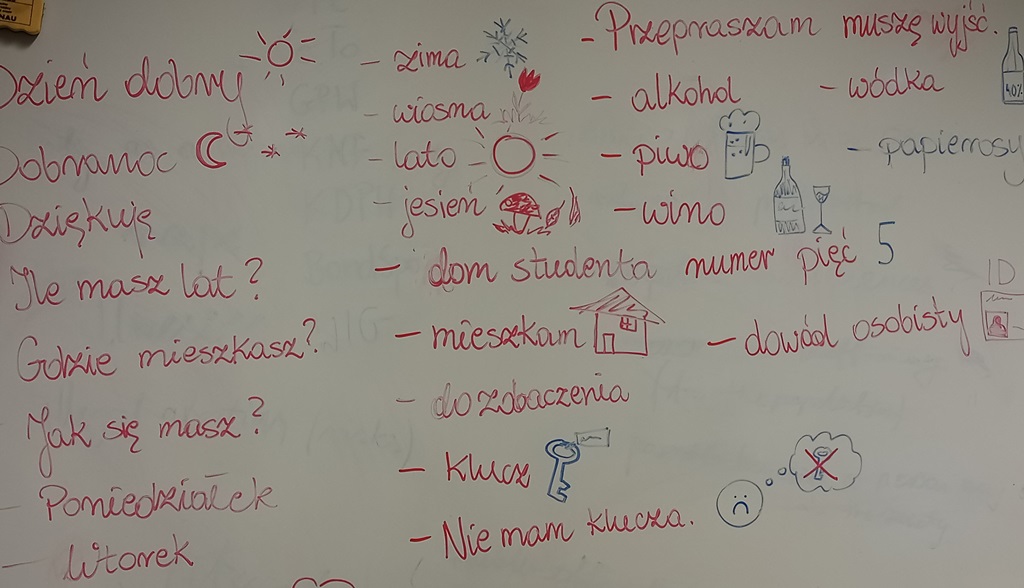 Dzień dobry
Dobranoc
Dziękuję
Ile masz lat?
Gdzie mieszkasz?
Jak się masz?
- Poniedziałek
- Wtorek
- zima
- wiosna
- lato
- jesień
- Przepraszam muszę wyjść.
- alkohol
- wódka
40%
- piwo
- papierosy
- wino
- dom studenta numer pięć 5
- mieszkam
- dowód osobisty
ID
- do zobaczenia
- klucz
- Nie mam klucza.